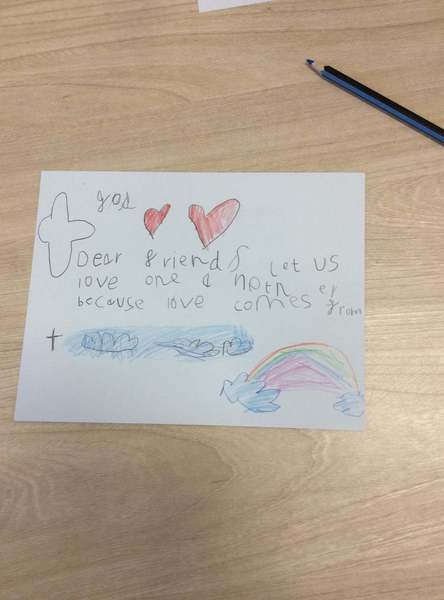 god
Dear friends Let us
love one a noth er
because love comes from